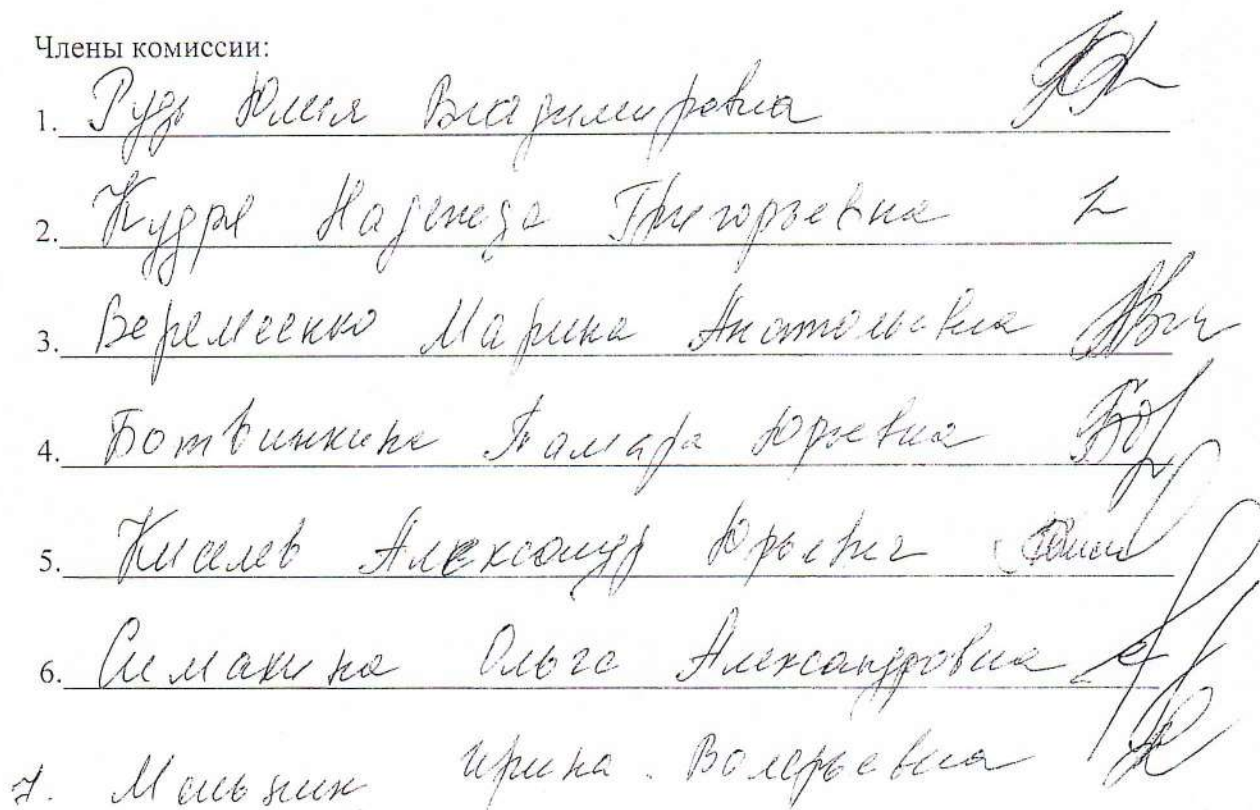 Члены комиссии:
1. Рудь Юлия Владимировна
2. Кудря Надежда Григорьевна
3. Веремеенко Марина Анатольевна
4. Ботвинкина Тамара Юрьевна
5. Киселев Александр Юрьевич
6. Симакина Ольга Александровна
7. Мельник Ирина Валерьевна